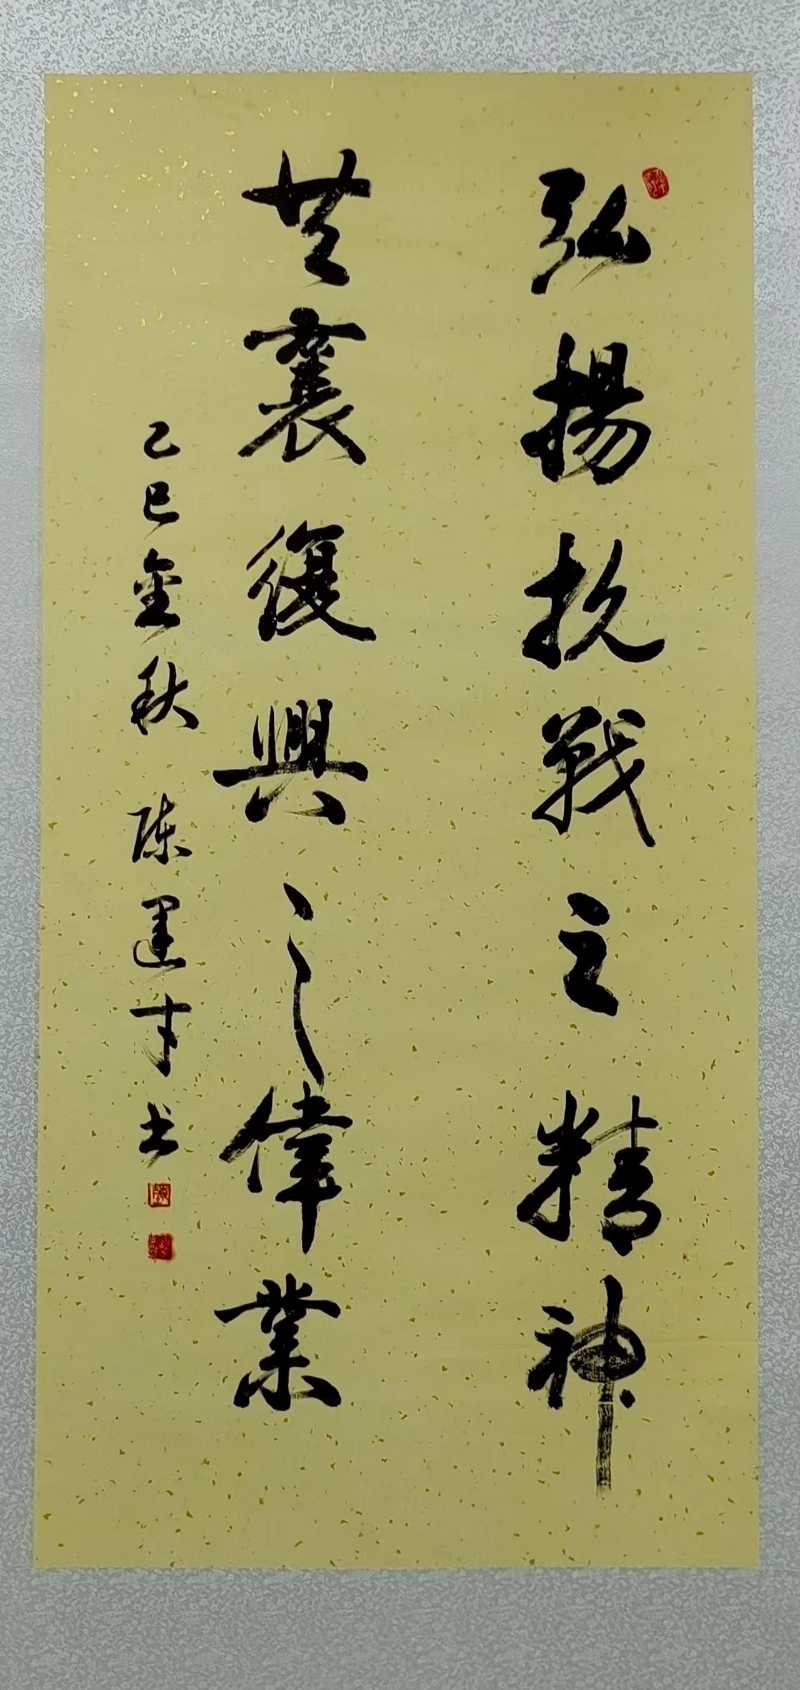 弘揚抗戰之精神
共襄復興之偉業
乙巳金秋 陈建中书